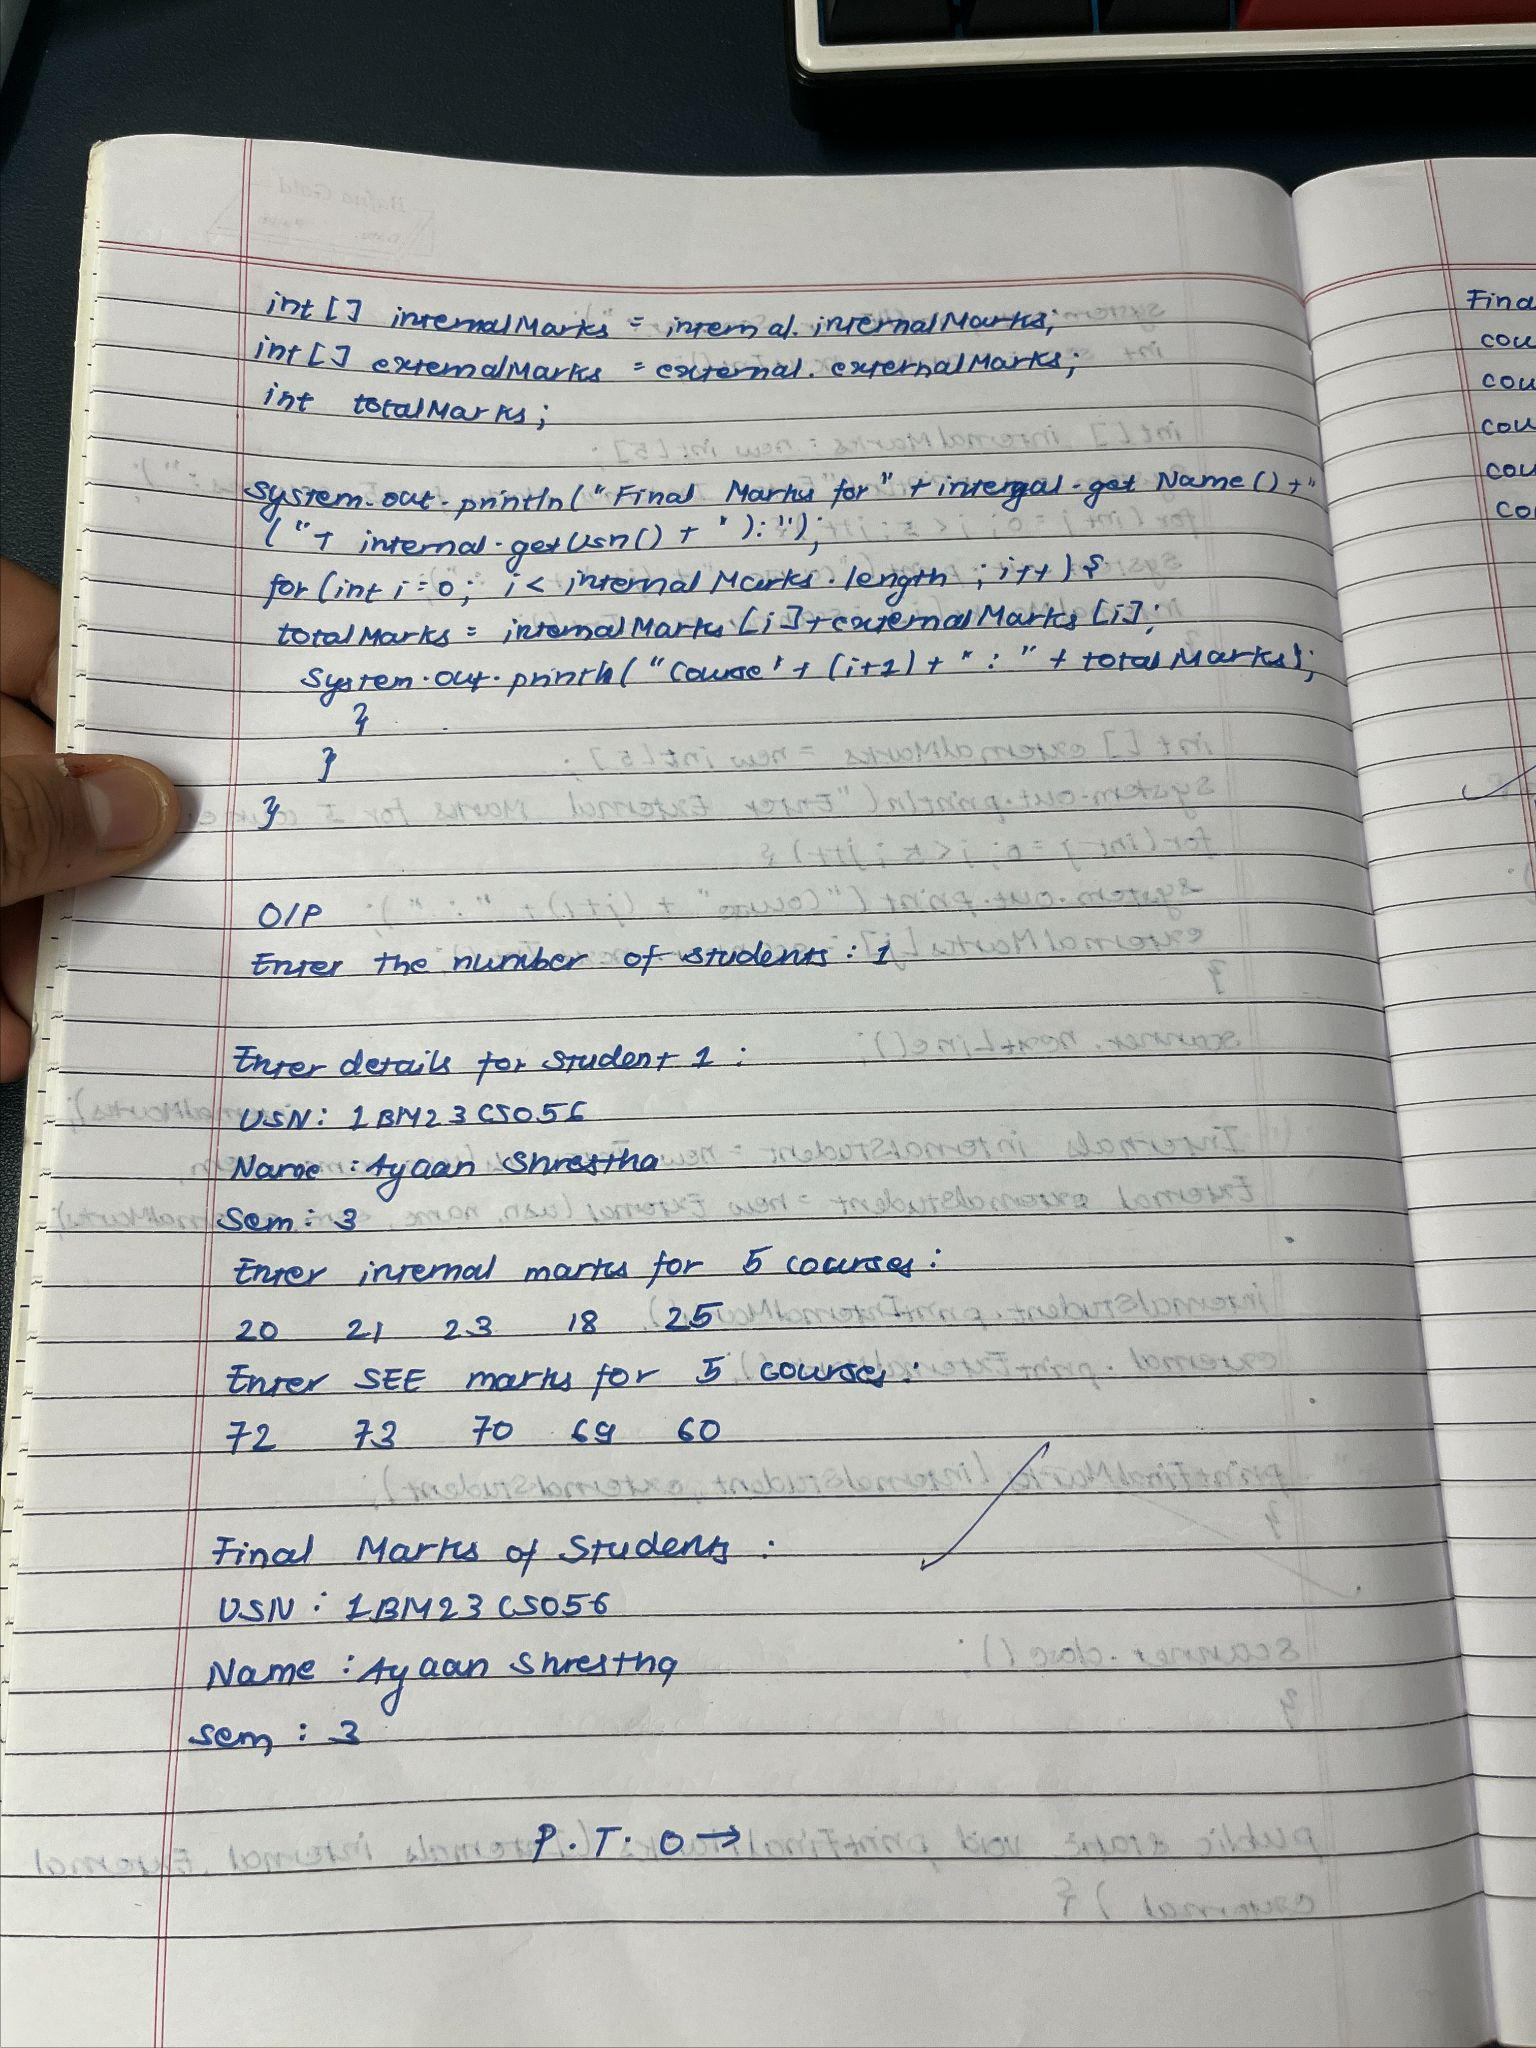 int [] internalMarks = internal. internalMarks;
int [] externalMarks = external. externalMarks;
int totalMarks;
System.out.println("Final Marks for" + internal.get Name() + "
( "+ internal.getUsn() + " ): ");
for (int i = 0; i < internalMarks.length ; i++) {
totalMarks = internalMarks [i] + externalMarks [i];
System.out.println("Course" + (i+1) + " : " + totalMarks);
}
}
}
O/P
Enter the number of students : 1
Enter details for student 1 :
USN: 1BM23CS056
Name : Ayaan Shrestha
Sem : 3
Enter internal marks for 5 courses :
20 21 23 18 25
Enter SEE marks for 5 courses :
72 73 70 69 60
Final Marks of Students :
USN : 1BM23CS056
Name : Ayaan Shrestha
sem : 3
P.T.O →
Final